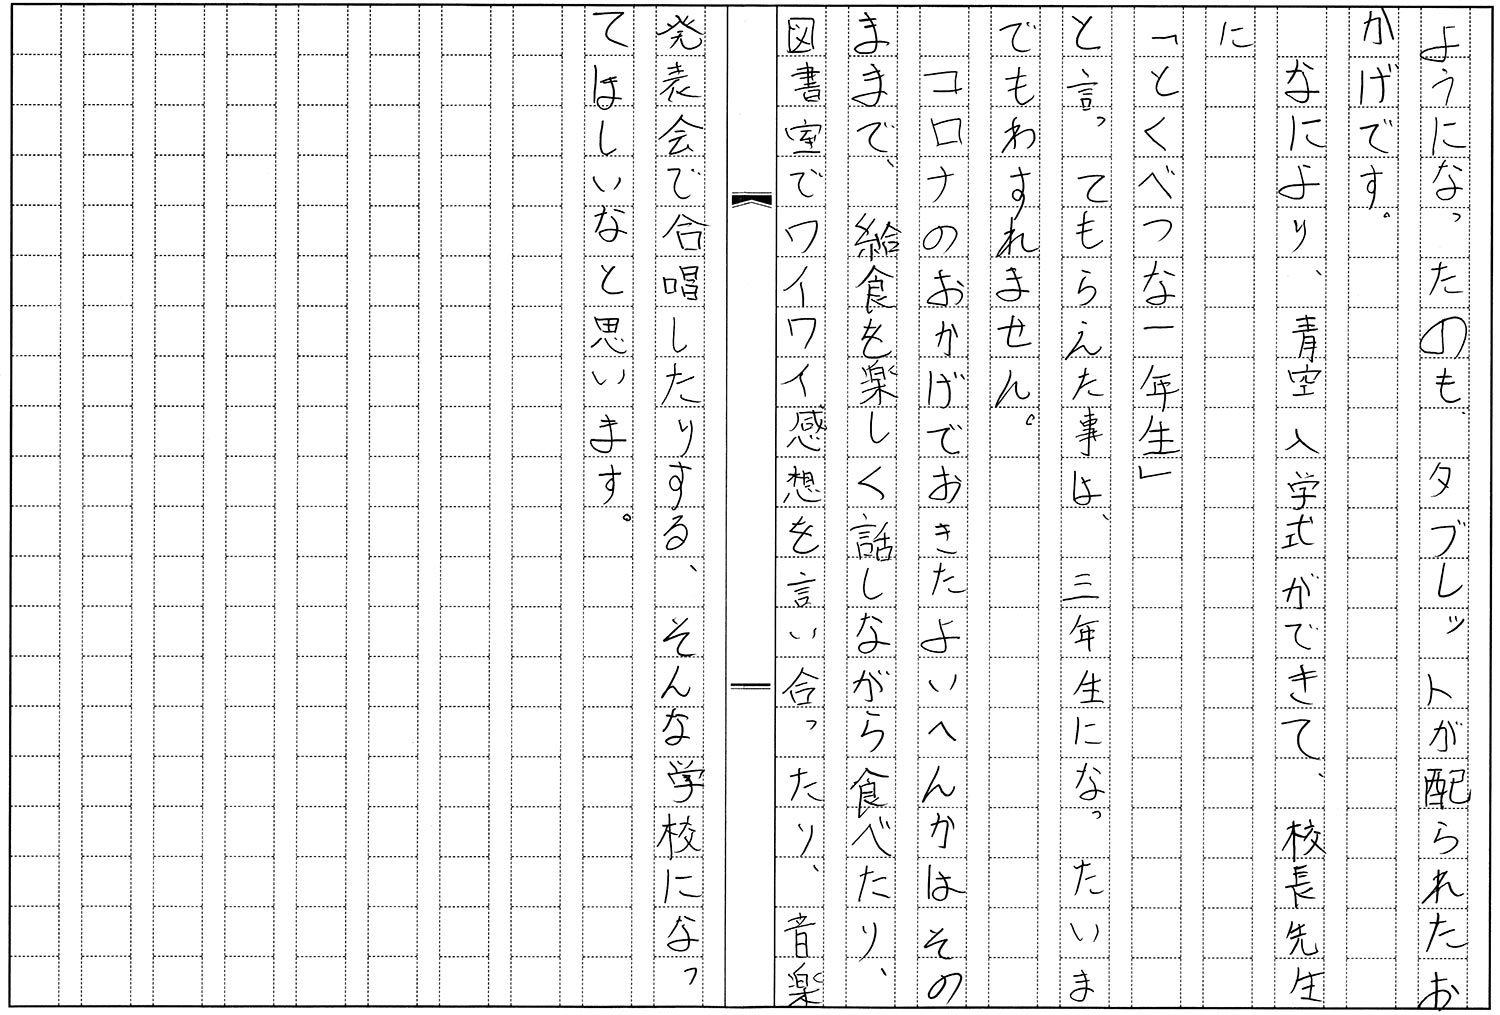 ようになったのも、タブレットが配られたお
かげです。
なにより、青空入学式ができて、校長先生
に
「とくべつな一年生」
と言ってもらえた事は、三年生になったいま
でもわすれません。
コロナのおかげでおきたよいへんかはその
ままで、給食を楽しく話しながら食べたり、
図書室でワイワイ感想を言い合ったり、音楽
発表会で合唱したりする、そんな学校になっ
てほしいなと思います。